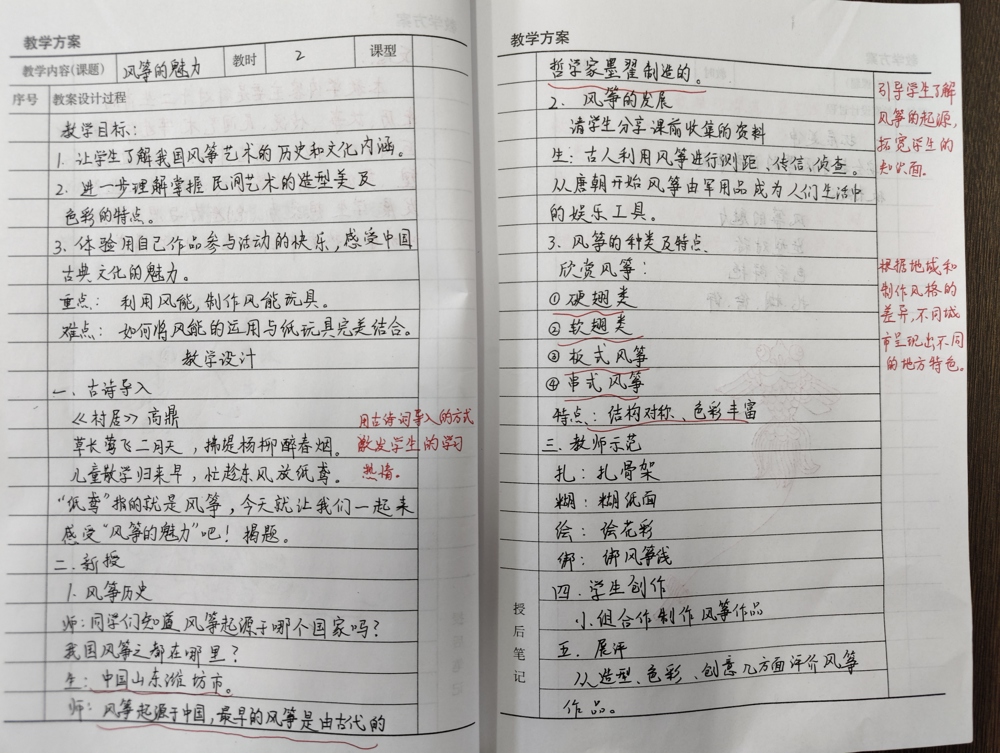 教学方案
教学内容(课题) 风筝的魅力 教时 2 课型
序号 教案设计过程
教学目标：
1. 让学生了解我国风筝艺术的历史和文化内涵。
2. 进一步理解掌握民间艺术的造型美及
色彩的特点。
3. 体验用自己作品参与活动的快乐，感受中国
古典文化的魅力。
重点： 利用风能，制作风能玩具。
难点： 如何将风能的运用与纸玩具完美结合。
教学设计
一. 古诗导入
《村居》高鼎
草长莺飞二月天，拂堤杨柳醉春烟。
儿童散学归来早，忙趁东风放纸鸢。
用古诗词导入的方式
激发学生的学习
热情。
“纸鸢”指的就是风筝，今天就让我们一起来
感受“风筝的魅力”吧！揭题。
二. 新授
1. 风筝历史
师：同学们知道风筝起源于哪个国家吗？
我国风筝之都在哪里？
生：中国山东潍坊市。
师：风筝起源于中国，最早的风筝是由古代的
教学方案
哲学家墨翟制造的。
2. 风筝的发展
请学生分享课前收集的资料
生：古人利用风筝进行测距、传信、侦查。
从唐朝开始风筝由军用品成为人们生活中
的娱乐工具。
引导学生了解
风筝的起源，
拓宽学生的
知识面。
3. 风筝的种类及特点.
欣赏风筝：
①硬翅类
②软翅类
③板式风筝
④串式风筝
特点：结构对称、色彩丰富
根据地域和
制作风格的
差异，不同城
市呈现出不同
的地方特色。
三. 教师示范
扎：扎骨架
糊：糊纸面
绘：绘花彩
绑：绑风筝线
四. 学生创作
小组合作制作风筝作品
五. 展评
从造型、色彩、创意几方面评价风筝
作品。
授后笔记